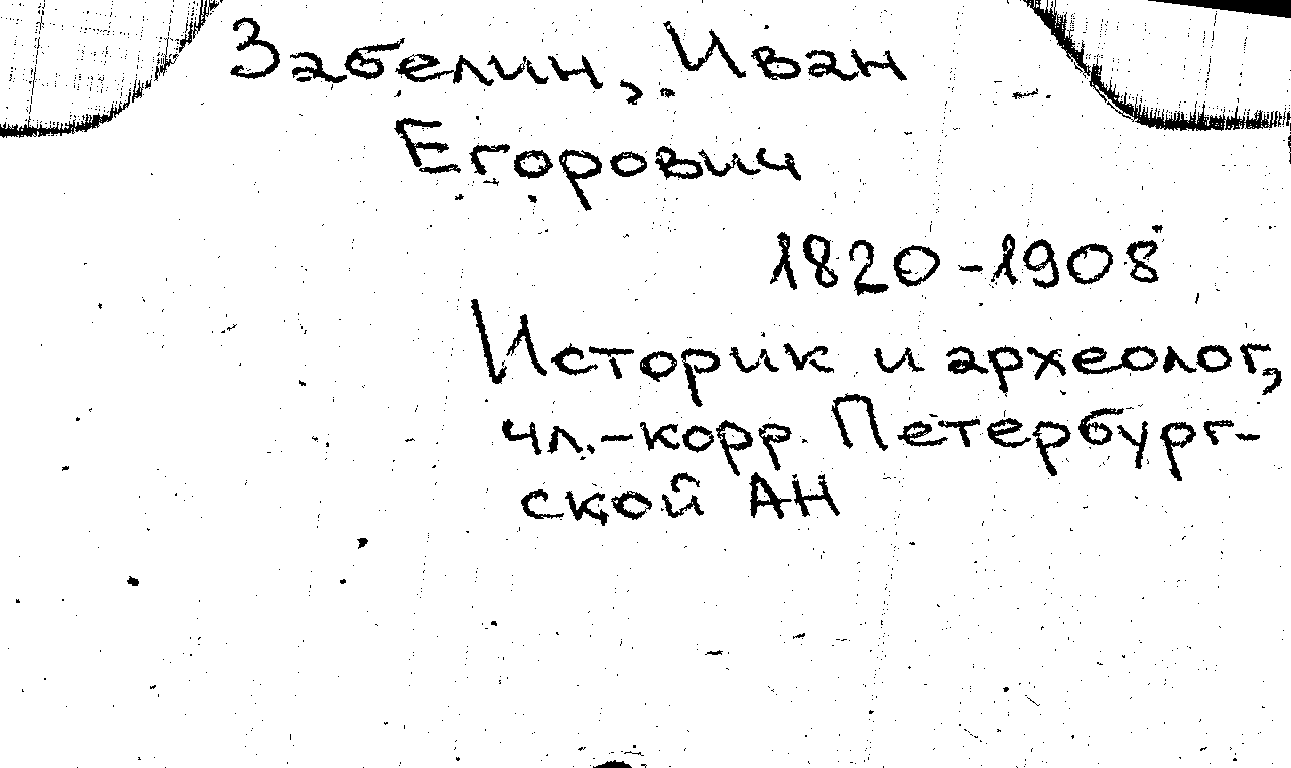 Забелин, Иван
Егорович
1820-1908
Историк и археолог,
чл.-корр. Петербург-
ской АН